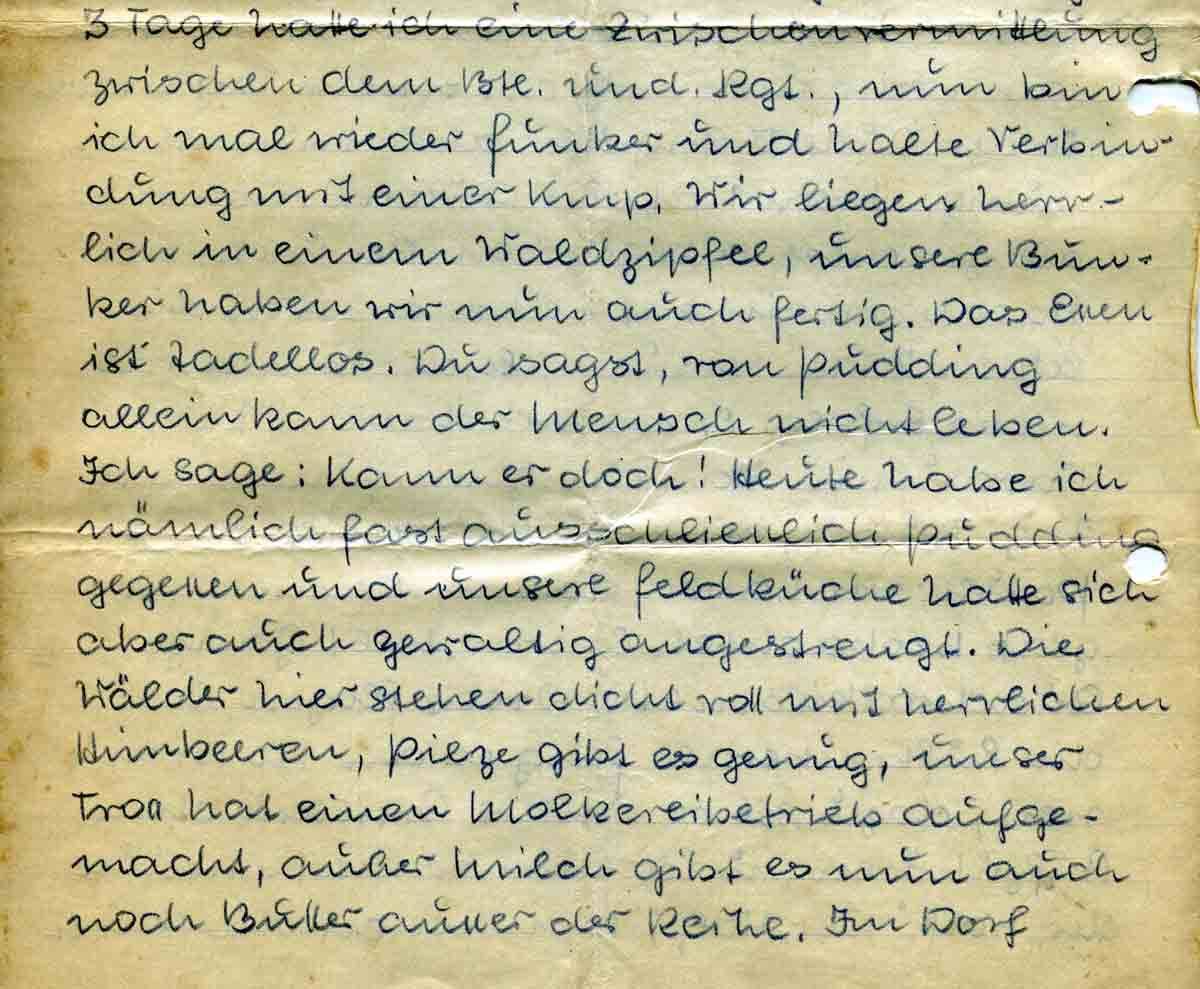 3 Tage hatte ich eine Zwischenvermittlung
zwischen dem Btl. und. Rgt., nun bin
ich mal wieder Funker und halte Verbin-
dung mit einer Kmp. Wir liegen herr-
lich in einem Waldzipfel, unsere Bun-
ker haben wir nun auch fertig. Das Essen
ist tadellos. Du sagst, von Pudding
allein kann der Mensch nicht leben.
Ich sage: Kann er doch! Heute habe ich
nämlich fast ausschliesslich Pudding
gegessen und unsere Feldküche hatte sich
aber auch gewaltig angestrengt. Die
Wälder hier stehen dicht voll mit herrlichen
Himbeeren, Pilze gibt es genug, unser
Tross hat einen Molkereibetrieb aufge-
macht, außer Milch gibt es nun auch
noch Butter ausser der Reihe. Im Dorf